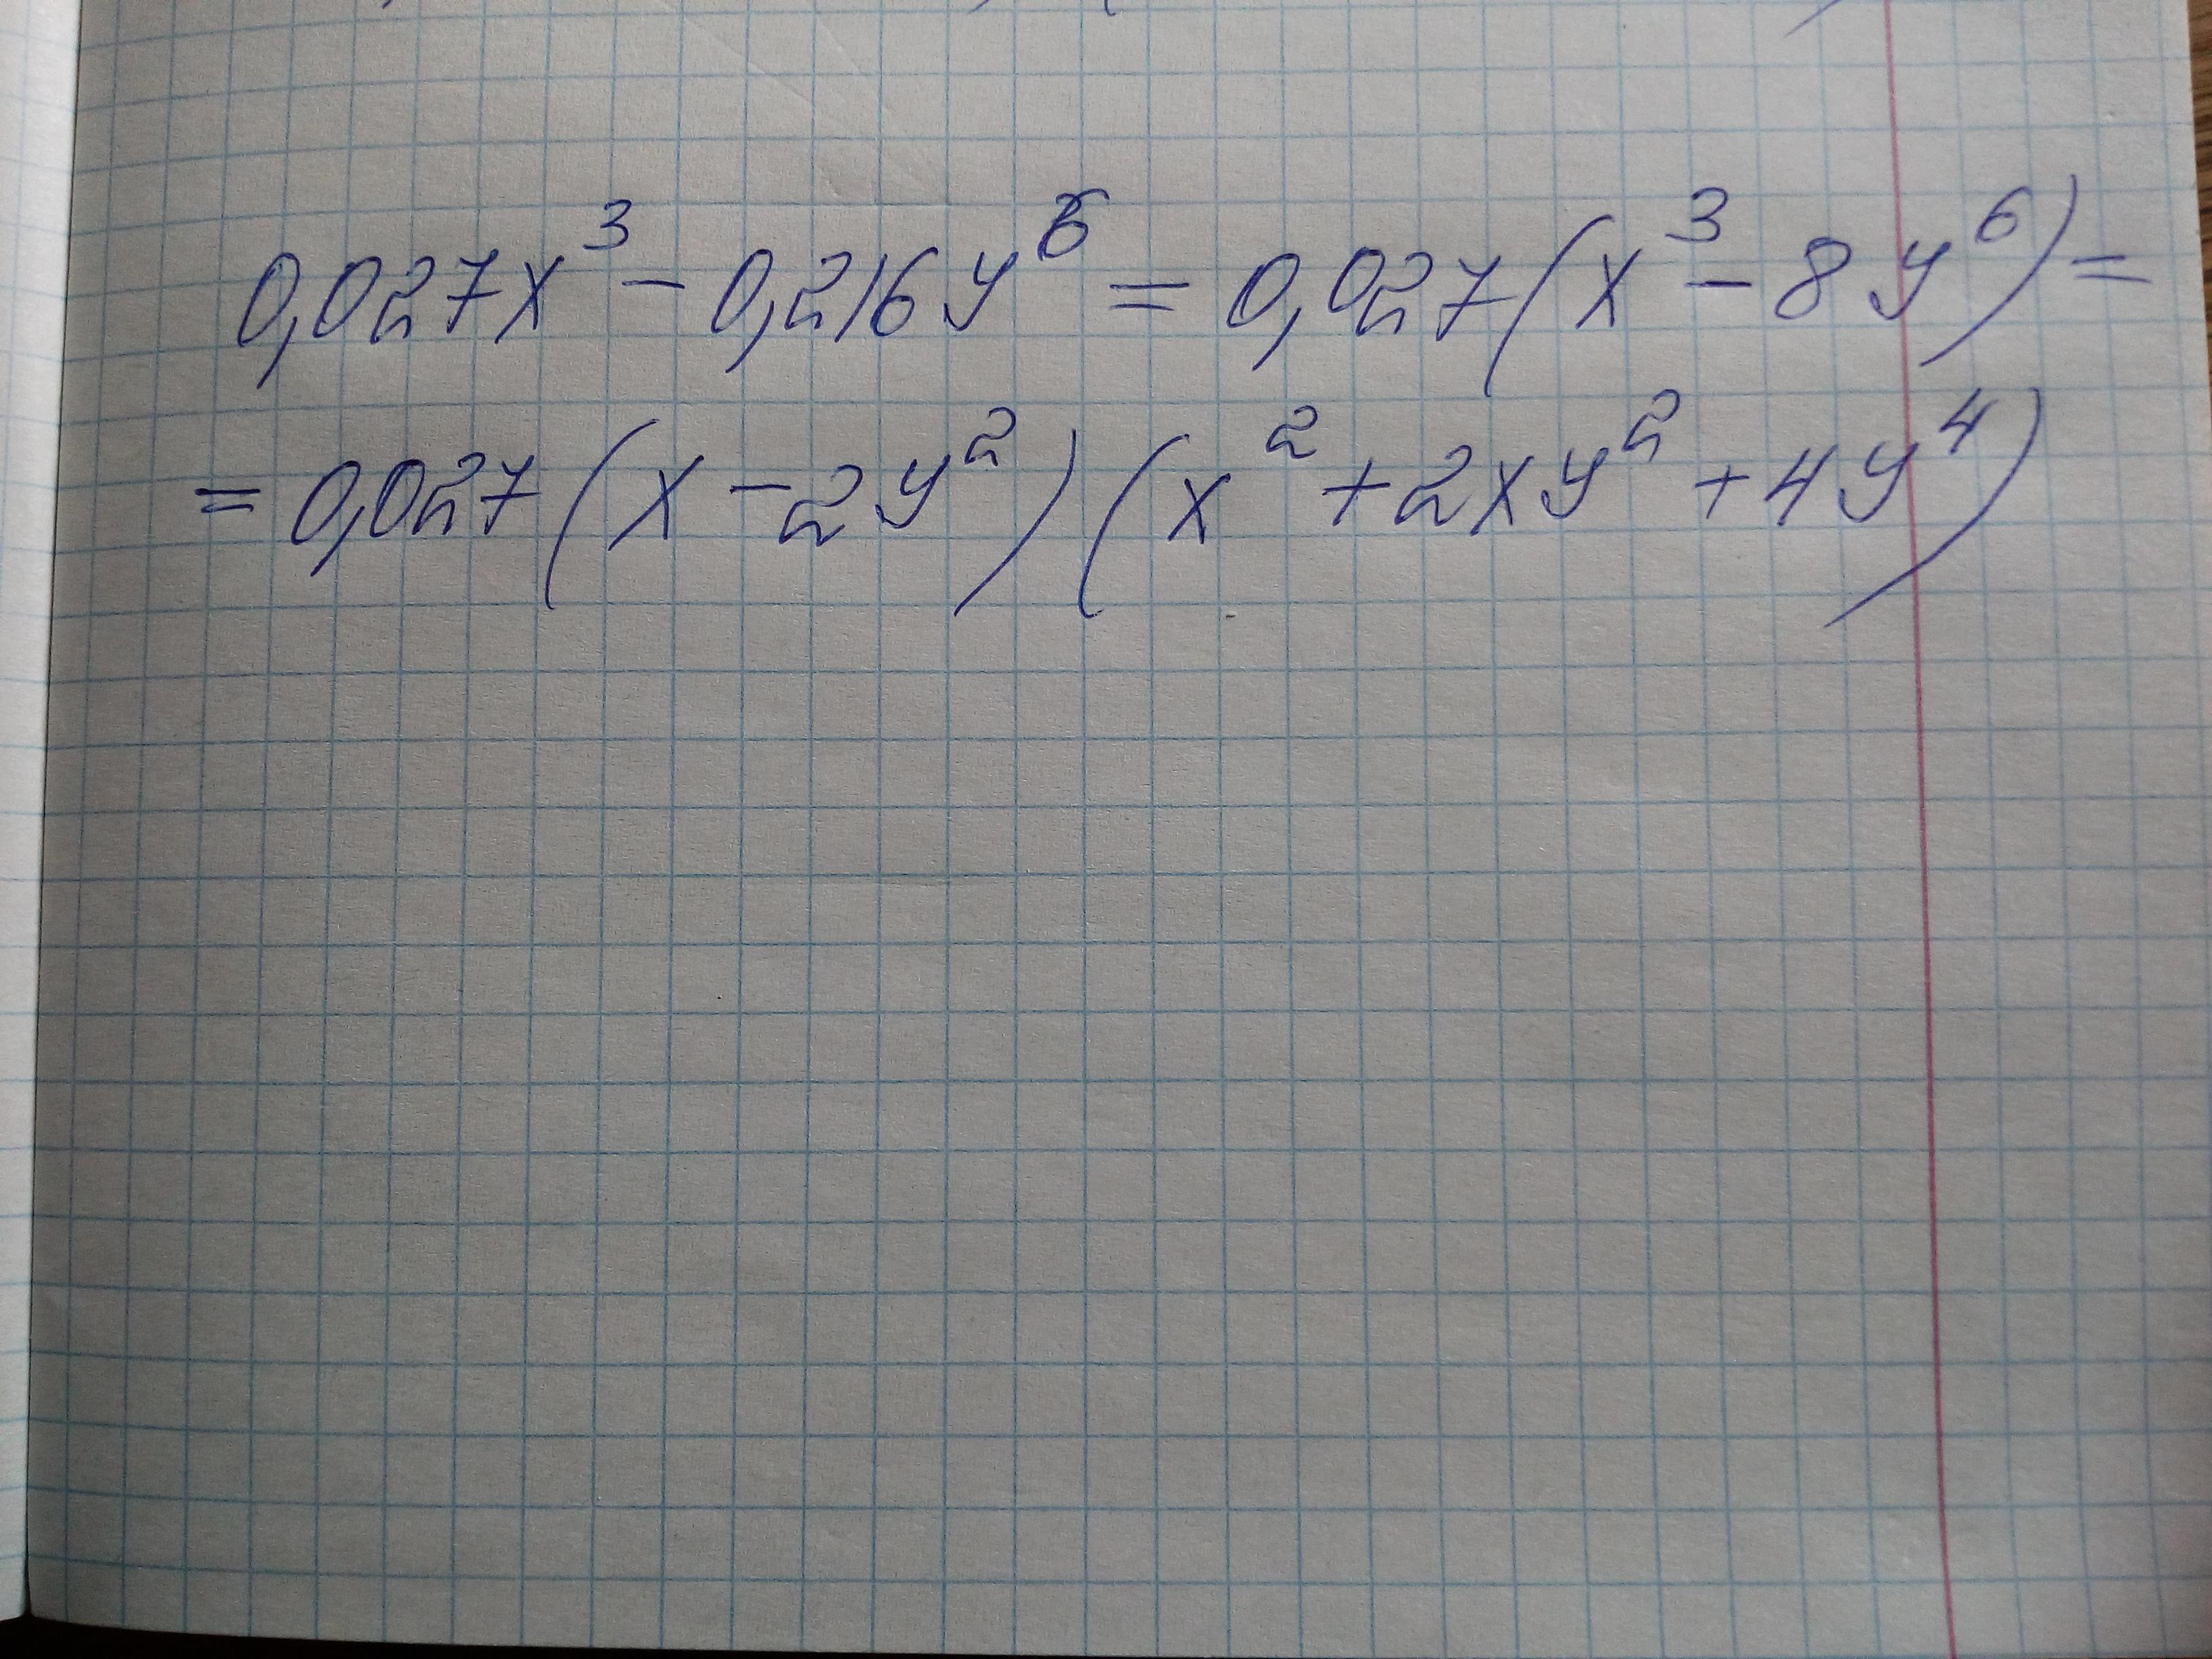 0,027x³ - 0,216y⁶ = 0,027(x³ - 8y⁶) =
= 0,027(x - 2y²)(x² + 2xy² + 4y⁴)